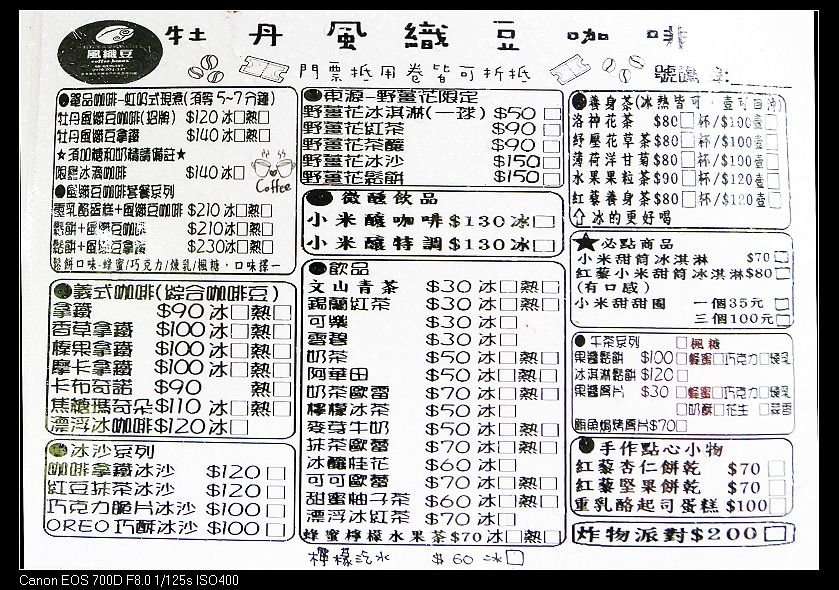 風織豆
coffee beans
牡丹風織豆咖啡
門票抵用卷皆可折抵
號碼
●單品咖啡-虹吸式現煮(須等5~7分鐘)
牡丹風織豆咖啡(招牌) $120冰□熱□
牡丹風織豆拿鐵 $140冰□熱□
★須加糖和奶精請備註★
限量冰滴咖啡 $140冰□
Coffee
●風織豆咖啡套餐系列
重乳酪蛋糕+風織豆咖啡 $210冰□熱□
鬆餅+風織豆咖啡 $210冰□熱□
鬆餅+風織豆拿鐵 $230冰□熱□
鬆餅口味-蜂蜜/巧克力/煉乳/楓糖，口味擇一
●義式咖啡(綜合咖啡豆)
拿鐵 $90冰□熱□
香草拿鐵 $100冰□熱□
榛果拿鐵 $100冰□熱□
摩卡拿鐵 $100冰□熱□
卡布奇諾 $90 熱□
焦糖瑪奇朵 $110冰□熱□
漂浮冰咖啡 $120冰□
●冰沙系列
咖啡拿鐵冰沙 $120□
紅豆抹茶冰沙 $120□
巧克力脆片冰沙 $100□
OREO巧酥冰沙 $100□
●東源-野薑花限定
野薑花冰淇淋(一球) $50□
野薑花紅茶 $90□
野薑花茶釀 $90□
野薑花冰沙 $150□
野薑花鬆餅 $150□
●微醺飲品
小米釀咖啡$130冰□
小米釀特調$130冰□
●飲品
文山青茶 $30冰□熱□
錫蘭紅茶 $30冰□熱□
可樂 $30冰□
雪碧 $30冰□
奶茶 $50冰□熱□
阿華田 $50冰□熱□
奶茶歐蕾 $70冰□熱□
檸檬冰茶 $50冰□
麥芽牛奶 $50冰□熱□
抹茶歐蕾 $70冰□熱□
冰釀桂花 $60冰□
可可歐蕾 $70冰□熱□
甜蜜柚子茶 $60冰□熱□
漂浮冰紅茶 $70冰□
蜂蜜檸檬水果茶$70冰□熱□
檸檬汽水 $60冰□
●養身茶(冰熱皆可，壺可回沖)
洛神花茶 $80□杯/$100壺□
紓壓花草茶$80□杯/$100壺□
薄荷洋甘菊$80□杯/$100壺□
水果果粒茶$90□杯/$120壺□
紅藜養身茶$80□杯/$120壺□
⇧冰的更好喝
★必點商品
小米甜筒冰淇淋 $70□
紅藜小米甜筒冰淇淋$80□
(有口感)
小米甜甜圈 一個35元□
三個100元□
●午茶系列 □楓糖
果醬鬆餅 $100□蜂蜜□巧克力□煉乳
冰淇淋鬆餅$120□
果醬厚片 $30□蜂蜜□巧克力□煉乳
□奶酥□花生□蒜香
鮪魚焗烤厚片$70□
●手作點心小物
紅藜杏仁餅乾 $70□
紅藜堅果餅乾 $70□
重乳酪起司蛋糕$100□
炸物派對$200□
Canon EOS 700D F8.0 1/125s ISO400